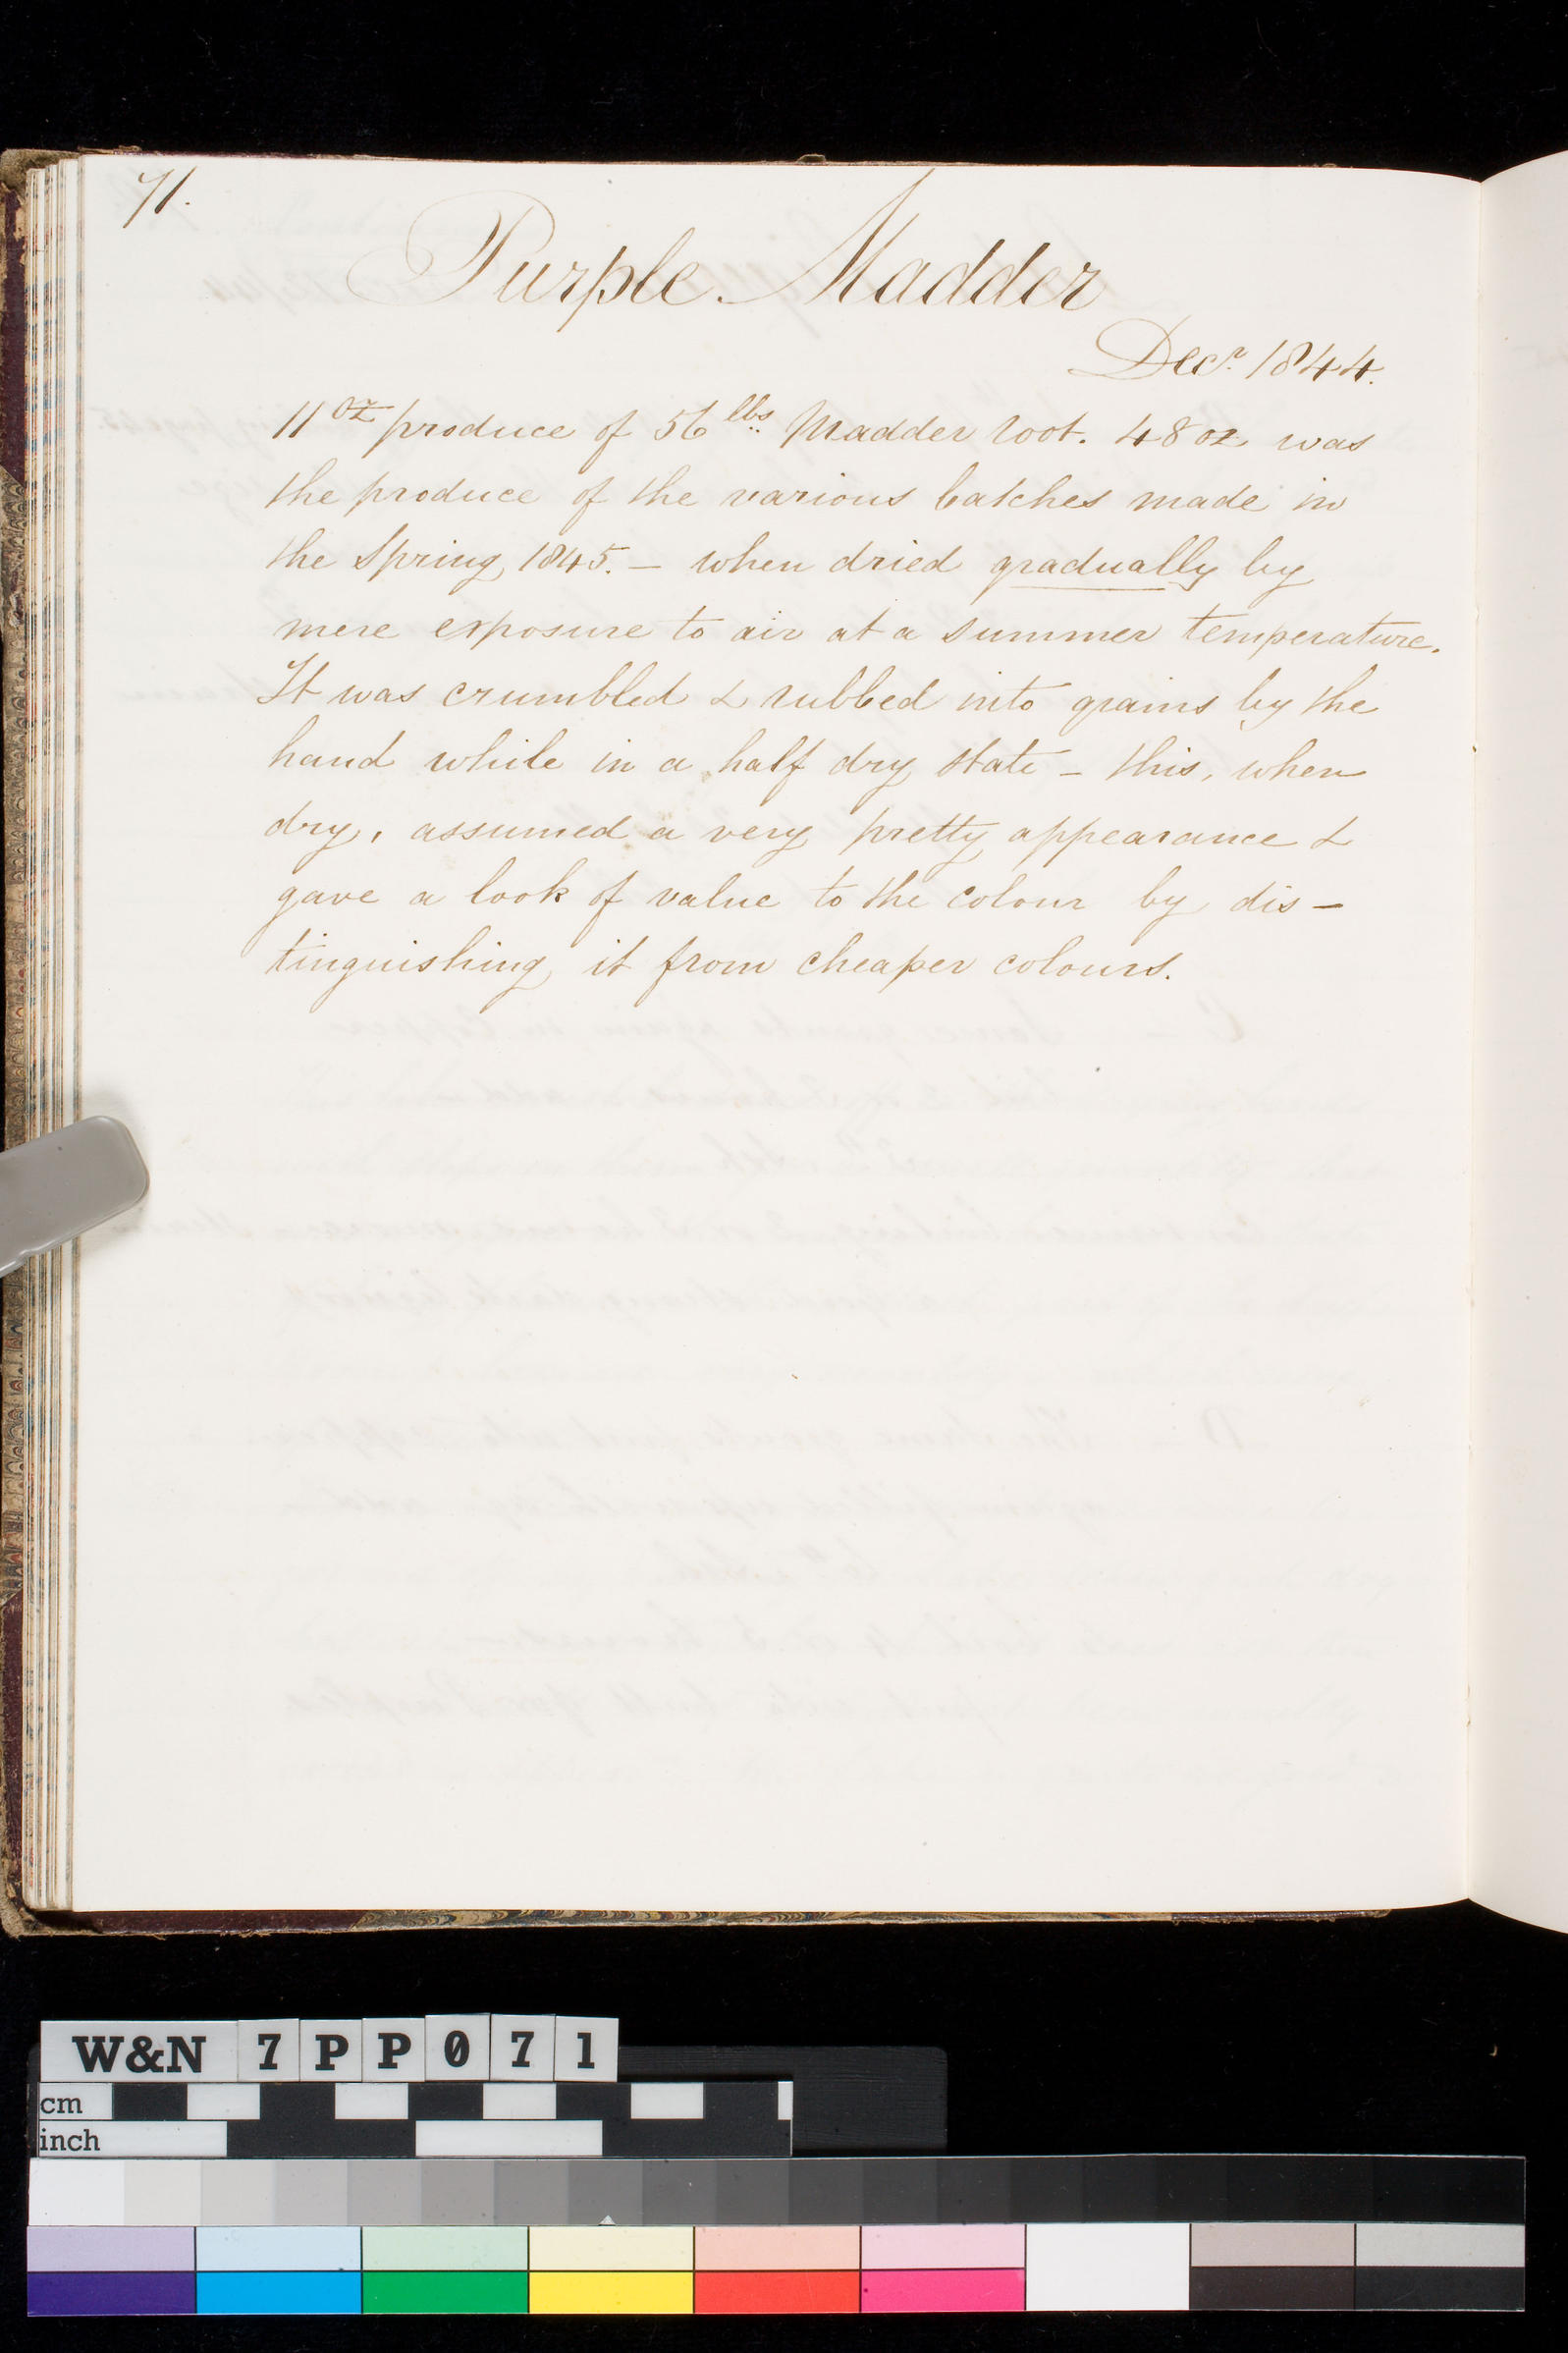 71.
Purple Madder
Decr. 1844.
11 oz produce of 56 lbs. Madder root. 48 oz was
the produce of the various batches made in
the Spring, 1845. – when dried gradually by
mere exposure to air at a summer temperature.
It was crumbled & rubbed into grains by the
hand while in a half dry state – this, when
dry, assumed a very pretty appearance &
gave a look of value to the colour by dis–
tinguishing it from cheaper colours.
W&N 7PP071
cm
inch